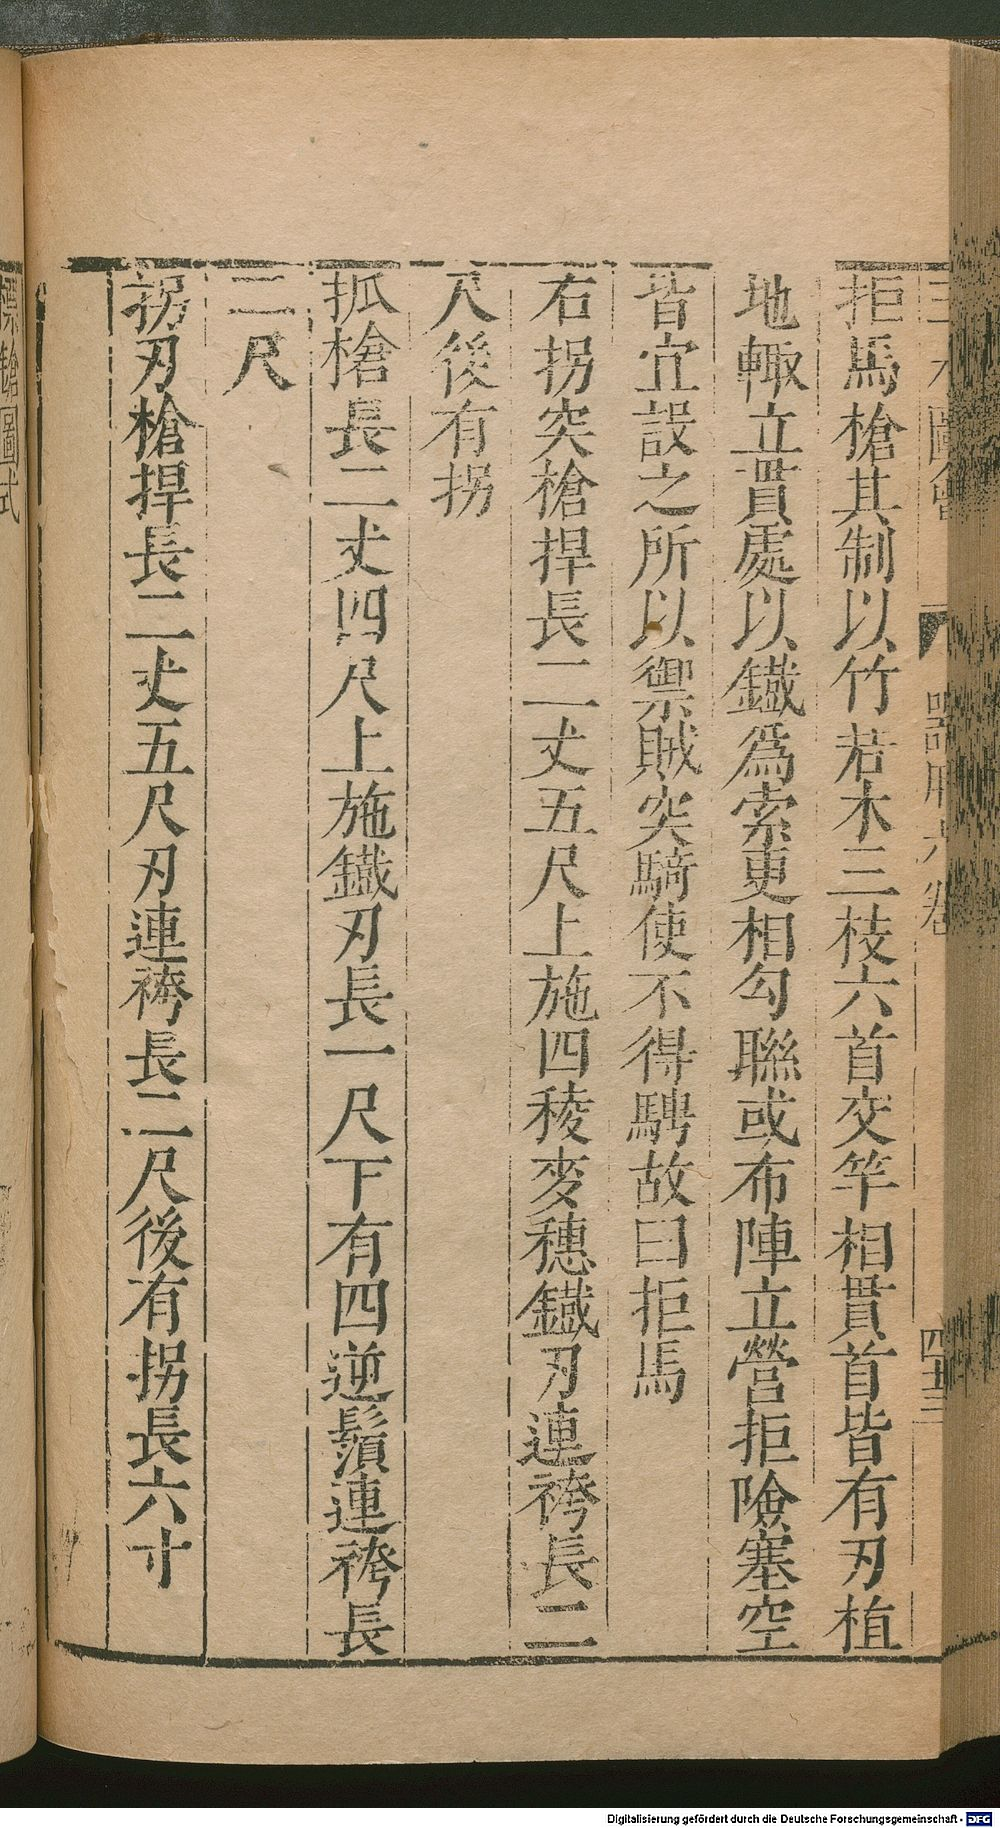 三才圖會 器用六卷 四十三
拒馬槍其制以竹若木三枝六首交竿相貫首皆有刃植
地輙立貫處以鐡爲索更相勾聯或布陣立營拒險塞空
皆宜設之所以禦賊突騎使不得騁故曰拒馬
右拐突槍捍長二丈五尺上施四稜麥穗鐡刃連袴長二
尺後有拐
抓槍長二丈四尺上施鐡刃長一尺下有四逆鬚連袴長
二尺
拐刃槍捍長二丈五尺刃連袴長二尺後有拐長六寸
標鎗圖式
Digitalisierung gefördert durch die Deutsche Forschungsgemeinschaft - DFG